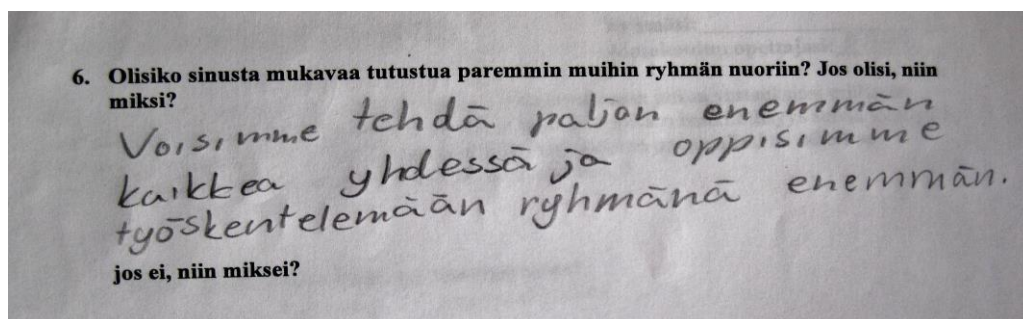 6. Olisiko sinusta mukavaa tutustua paremmin muihin ryhmän nuoriin? Jos olisi, niin
miksi?
Voisimme tehdä paljon enemmän
kaikkea yhdessä ja oppisimme
työskentelemään ryhmänä enemmän.
jos ei, niin miksei?